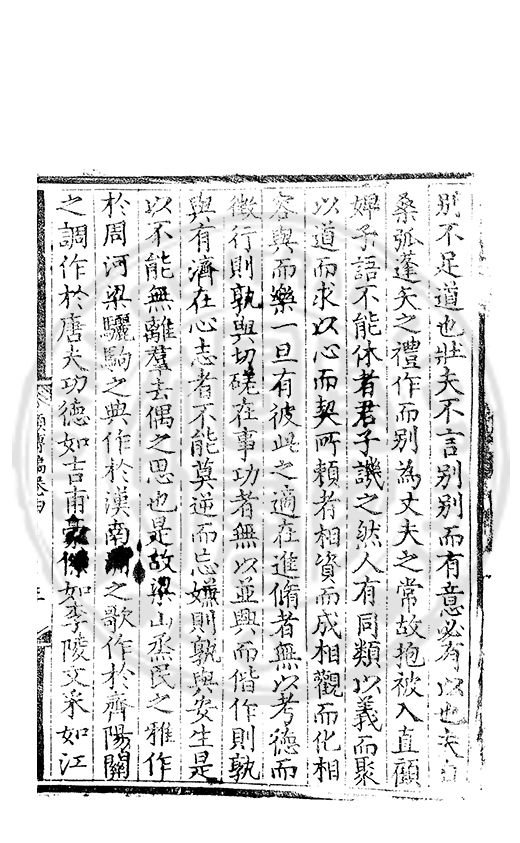 別不足道也壯夫不言别别而有意必有以也夫自
桑弧蓬矢之禮作而别為丈夫之常故抱被入直顧
婢子語不能休者君子譏之然人有同類以義而聚
以道而求以心而契所賴者相資而成相觀而化相
容與而樂一旦有彼此之適在進脩者無以考德而
徵行則孰與切磋在事功者無以並興而偕作則孰
與有濟在心志者不能莫逆而忘嫌則孰與安生是
以不能無離羣去偶之思也是故梁山烝民之雅作
於周河梁驪駒之興作於漢南之歌作於齊陽關
之調作於唐夫功德如吉甫豪傑如李陵文采如江
卷四